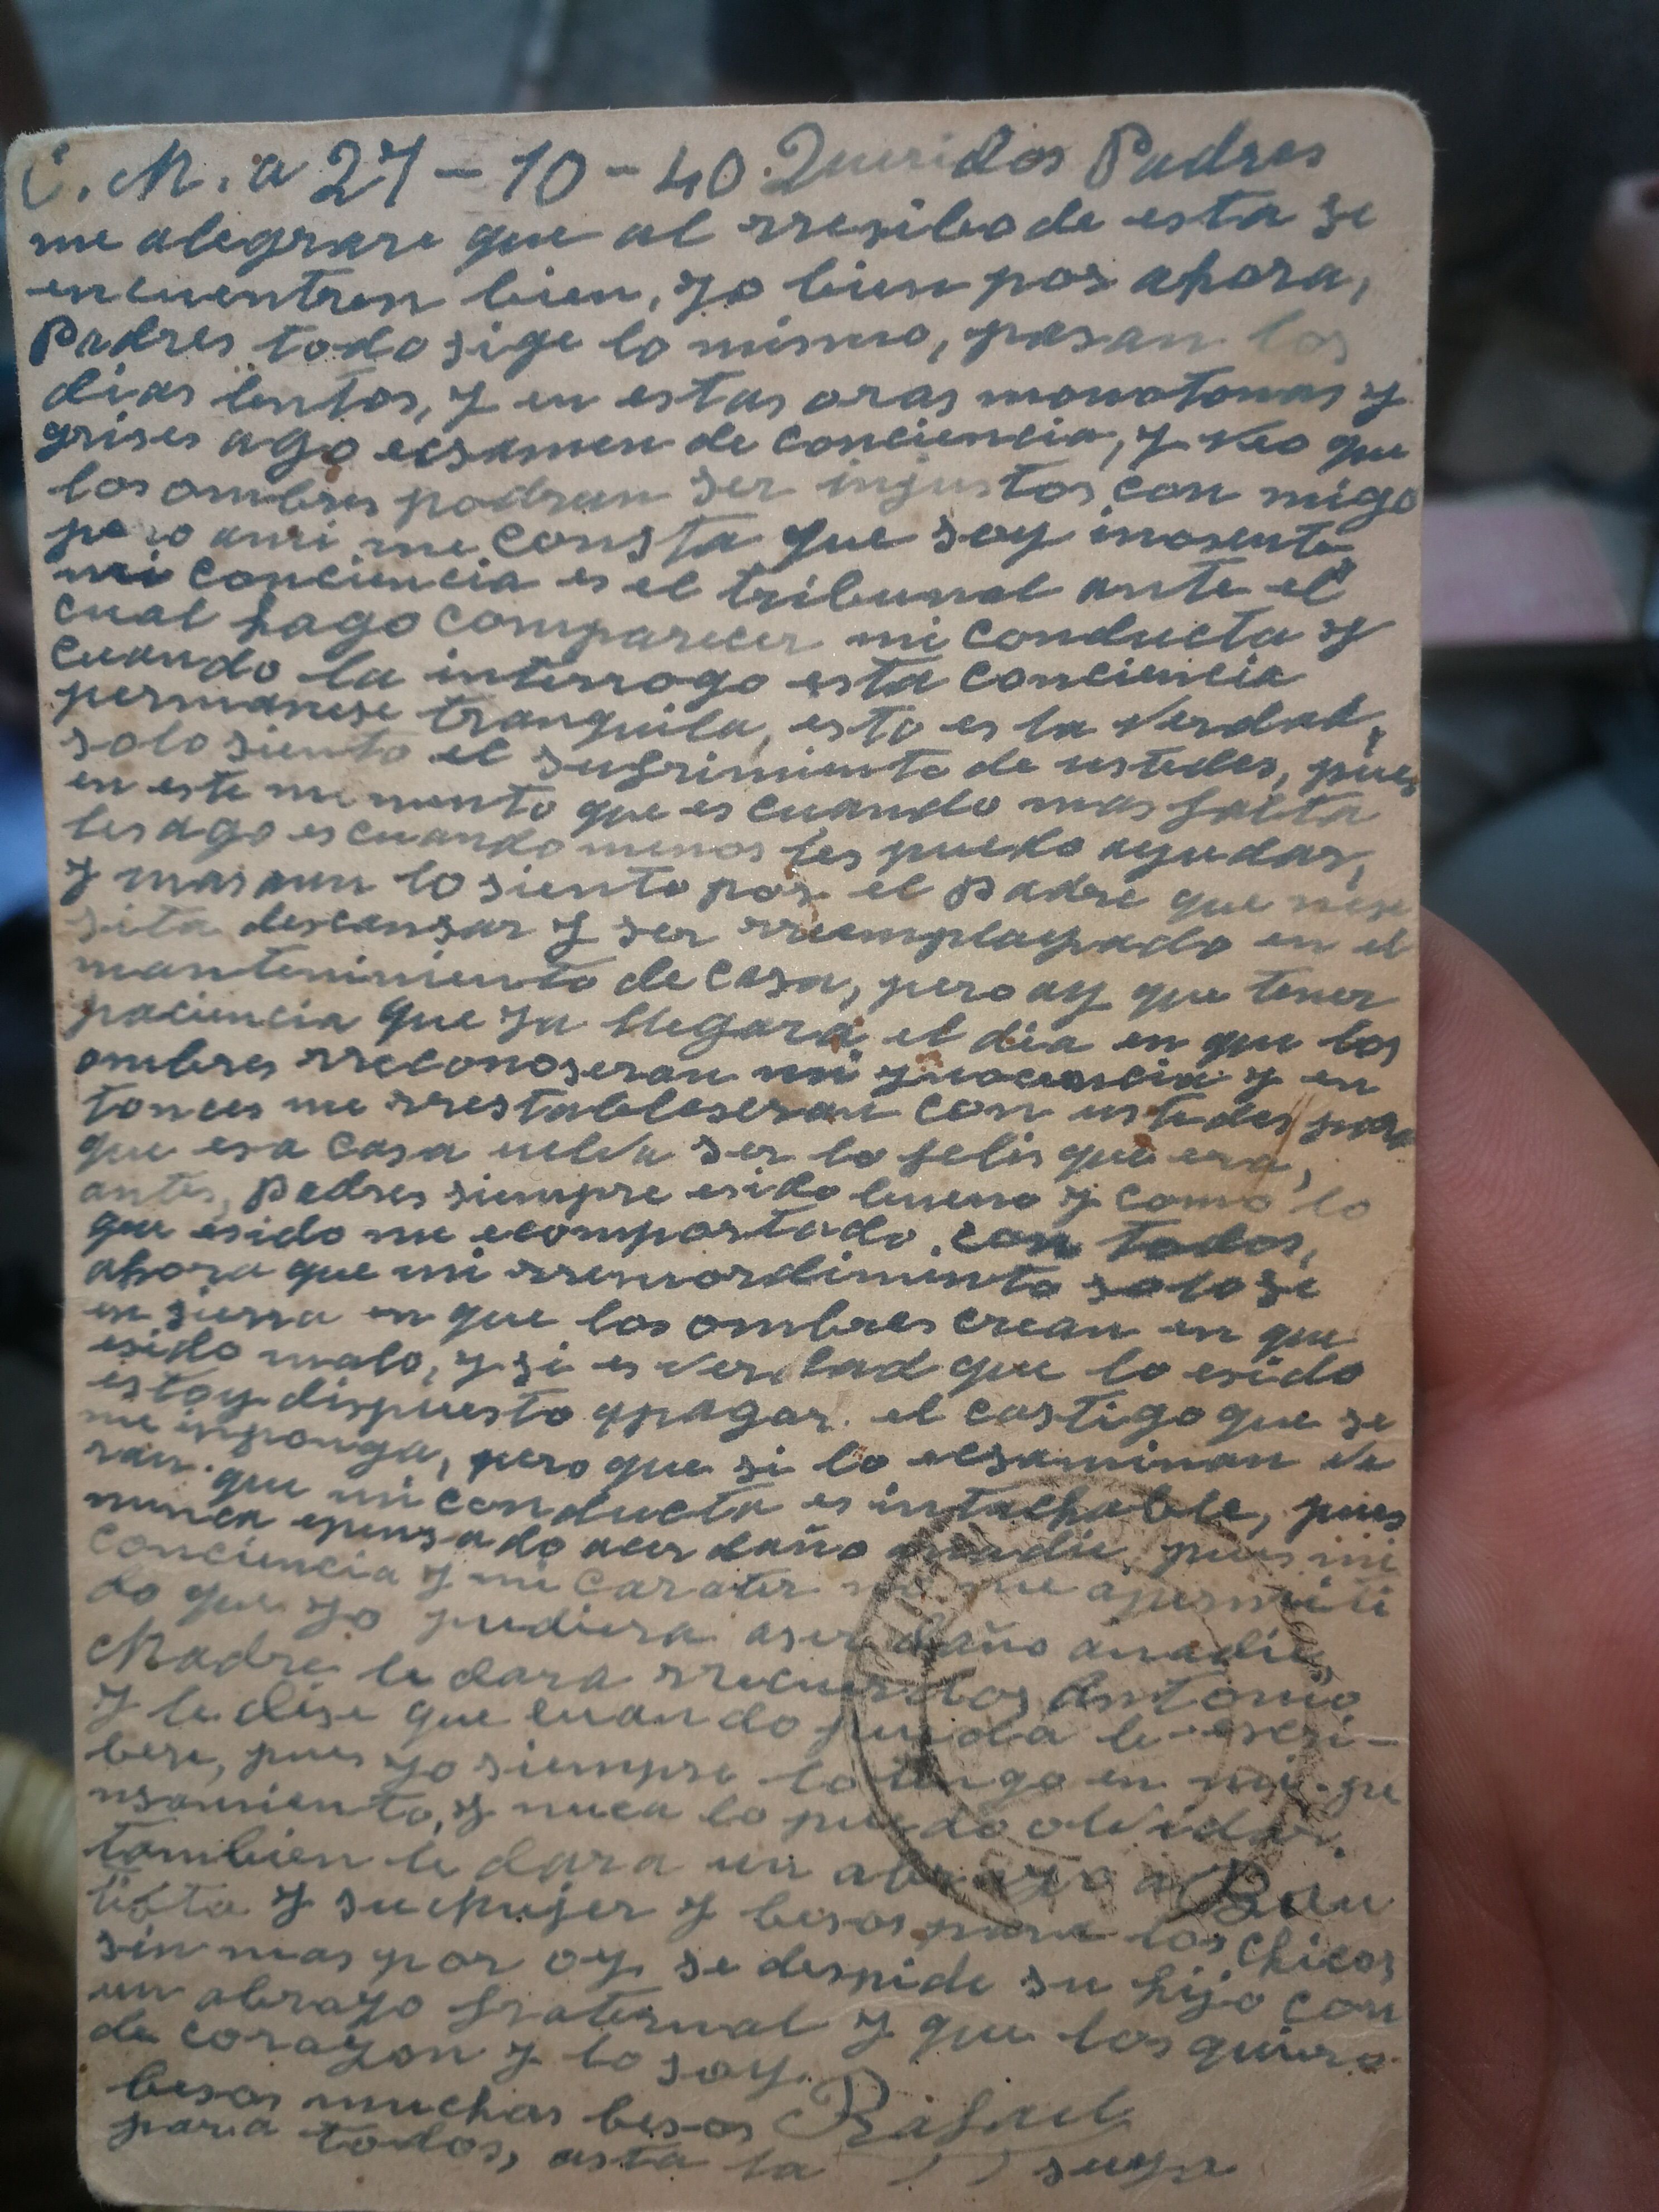 C. M. a 27-10-40. Queridos Padres
me alegrare que al rresibo de esta se
encuentren bien, yo bien por ahora,
Padres todo sige lo mismo, pasan los
dias lentos, y en estas oras monotonas y
grises ago ecsamen de conciencia, y veo que
los ombres podran ser injustos con migo
pero ami me consta que soy inosente
mi conciencia es el tribunal ante el
cual hago comparecer mi conducta y
cuando la interrogo esta conciencia
permanese tranquila, esto es la verdad,
solo siento el sufrimiento de ustedes, pues
en este mumento que es cuando mas falta
les ago es cuando menos les puedo ayudar,
y mas aun lo siento por el padre que nese
sita descansar y ser rremplasado en el
mantenimiento de casa, pero ay que tener
paciencia que ya llegara el dia en que los
ombres rreconoseran mi ynocencia y en
tonces me rrestableseran con ustedes para
que esa casa uelva ser lo felis que era,
antes, Padres siempre esido bueno y como lo
que esido me ecomportado con todos,
ahora que mi rremordimento solo se
en sierra en que los ombres crean en que
esido malo, y si es verdad que lo esido
estoy dispuesto apagar el castigo que se
me inponga, pero que si lo ecsaminan ve
ran que mi conducta es intachable, pues
nunca epensado acer daño anadie, pues mi
conciencia y mi carater no me apermiti
do que yo pudiera aser daño anadie,
Madre le dara rrecuerdos Antonio
y le dise que cuando pueda le escri-
bere, pues yo siempre lo tengo en mi pe
nsamiento, y nuca lo puedo olvidar.
tambien le dara un abrazo a Bau
tista y su mujer y besos para los chicos
sin mas por oy se despide su hijo con
un abrazo fraternal y que los quiere
de corazon y lo soy.
besos muchos besos Rafael
para todos, asta la suya